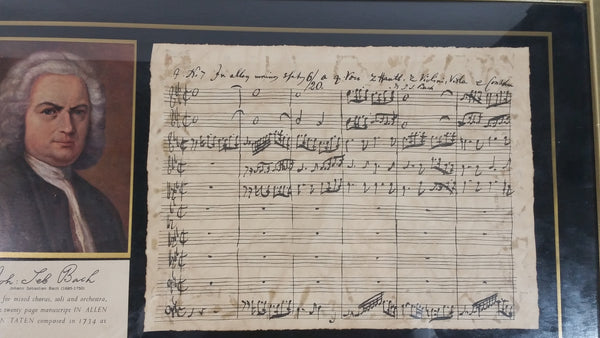 In allen
à 4 Voc. 2 Hautb. 2 Violini, Viola e
J. S. Bach
Joh: Seb Bach
Johann Sebastian Bach (1685-1750)
for mixed chorus, soli and orchestra,
twenty page manuscript IN ALLEN
N TATEN composed in 1734 at